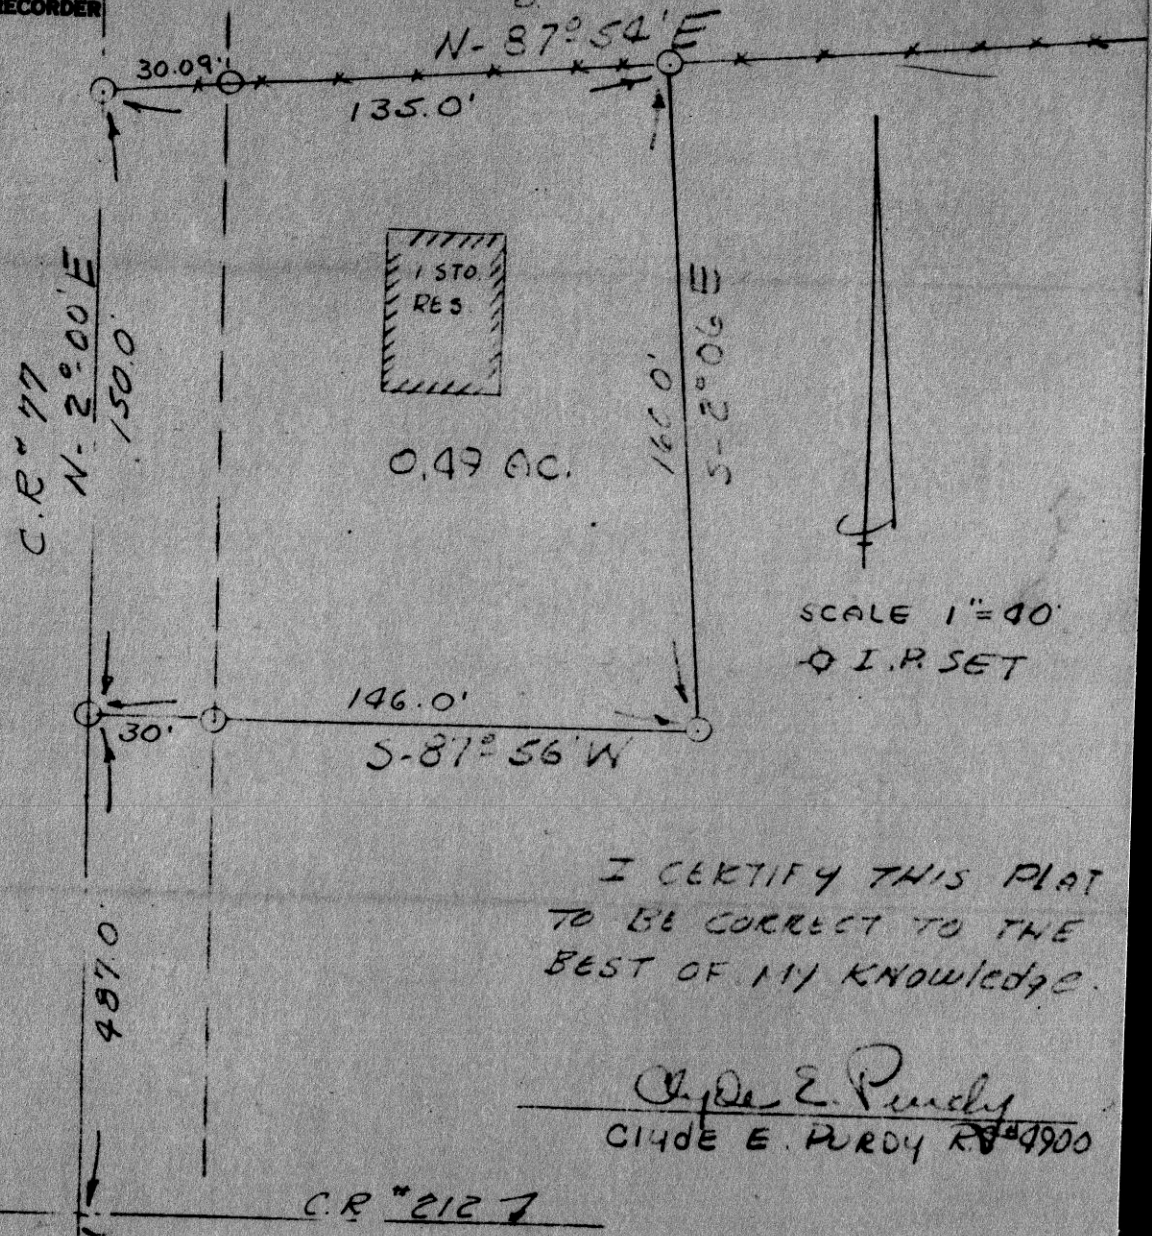 RECORDER
N- 87° 54' E
30.09'
135.0'
1 STO.
RES
C.R # 77
N- 2° 00' E
150.0'
160.0'
S-2° 06 E
0.49 AC.
SCALE 1"=40'
I.P. SET
146.0'
30'
S-87° 56' W
487.0'
I CERTIFY THIS PLAT
TO BE CORRECT TO THE
BEST OF MY KNOWledge.
Clyde E. Purdy
ClydE E. PURDY R.S#4900
C.R #212